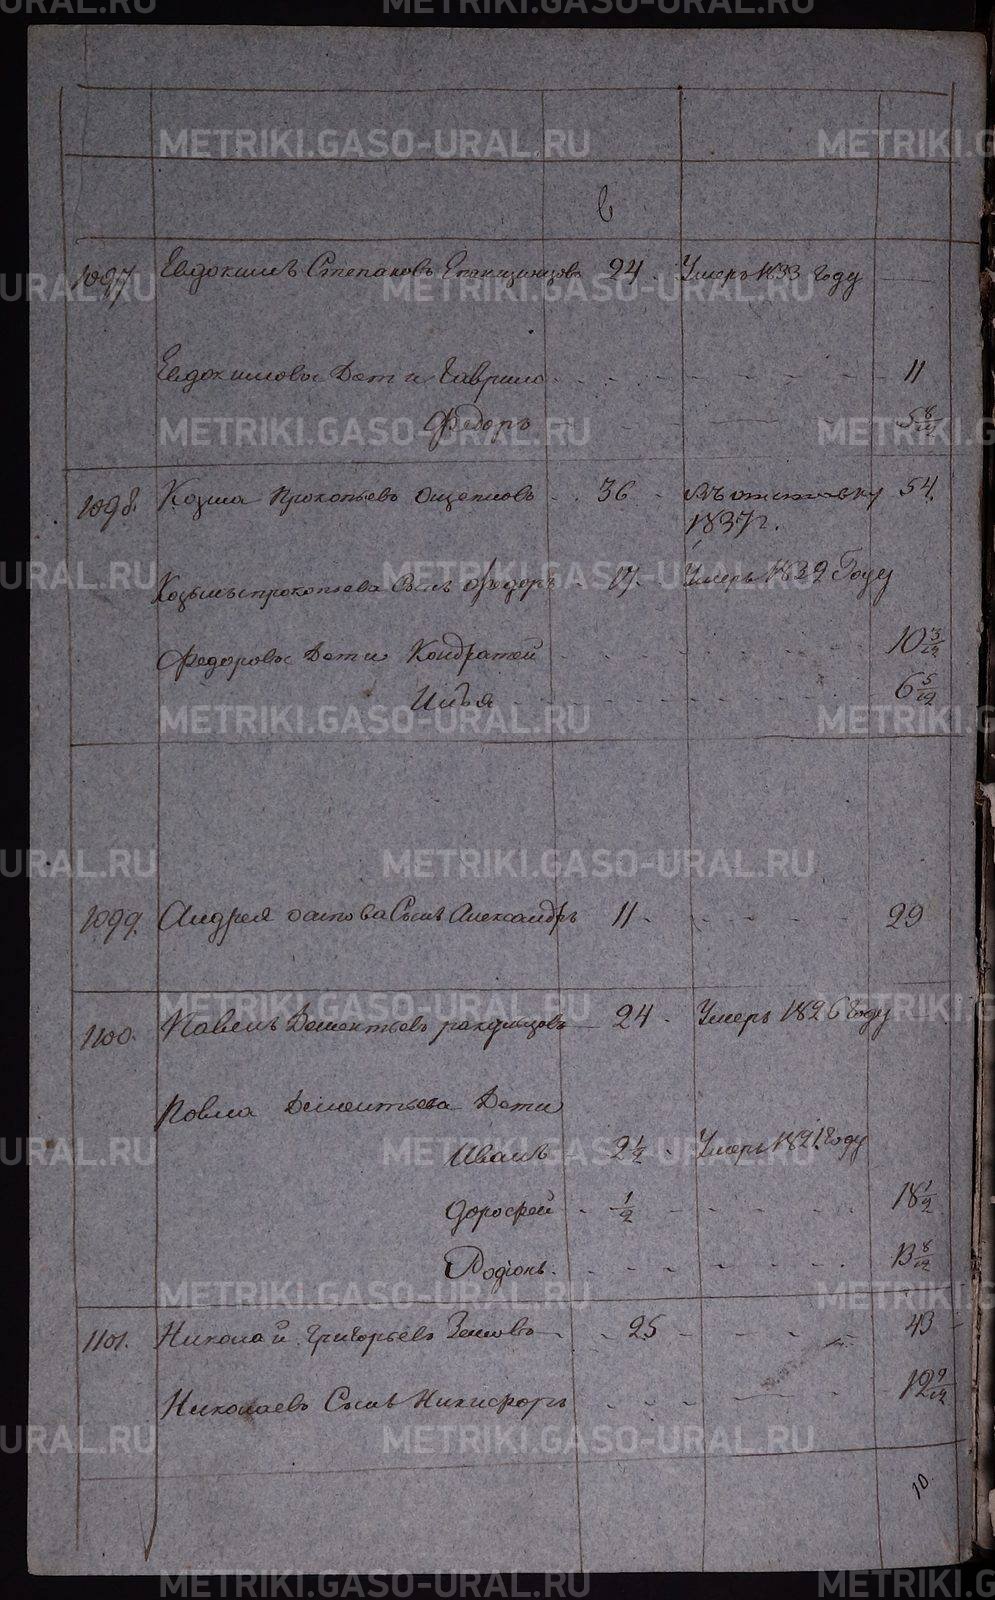 в
1097. Евдокимъ Степановъ Епанчинцовъ 24. Умеръ 1833 году
Евдокимовы Дети Гаврило 11
Федоръ 5 8/12
1098. Козма Прокопьевъ Ощепковъ 36 въ отставку 54.
1837 г.
Козьмы прокопьева Сынъ Федоръ 17. Умеръ 1832 Году
Федоровы Дети Кондратей 10 3/12
Илья 6 5/12
1099. Андрея Сынъ Александръ 11. 29
1100. Павелъ Дементьевъ 24. Умеръ 1826 году
Павла Дементьева Дети
Иванъ 2 1/2. Умеръ 1821 году
Дорофей 1/2 18 1/2
Родіонъ. 13 8/12
1101. Николай Григорьевъ Зыковъ 25 43
Николаевъ Сынъ Никифоръ 12 9/12
10.
METRIKI.GASO-URAL.RU